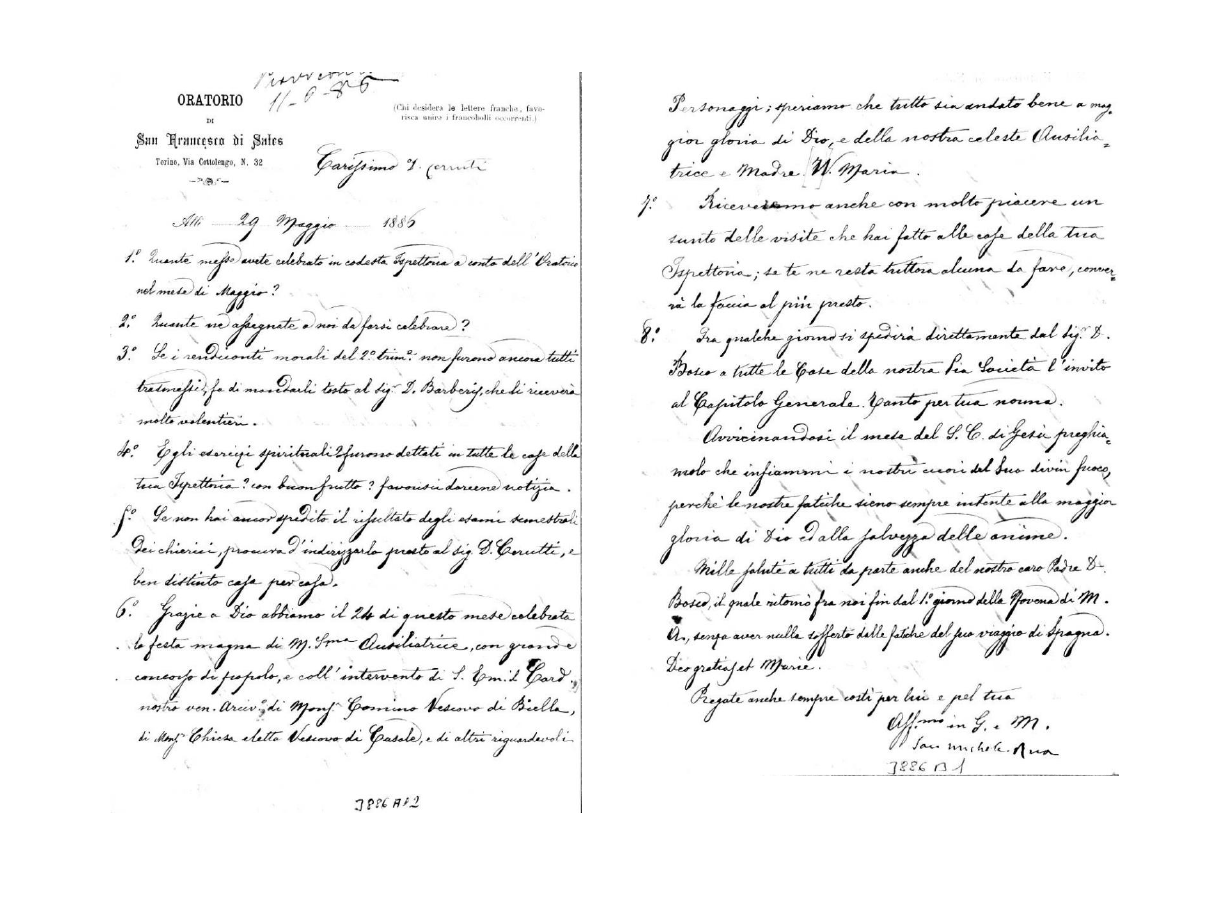 11-6-86
ORATORIO
DI
San Francesco di Sales
Torino, Via Cottolengo, N. 32
(Chi desidera le lettere franche, favo-
risca unire i francobolli occorrenti.)
Carissimo D. Cerruti
Alli 29 Maggio 1886
1.° Quante messe avete celebrato in codesta Ispettoria a conto dell'Oratorio
nel mese di Maggio?
2.° Quante ne assegnate a noi da farsi celebrare?
3.° Se i rendiconti morali del 2.° trim.e non furono ancora tutti
trasmessi, fa di mandarli tosto al sig. D. Barberis, che li riceverà
molto volentieri.
4.° E gli esercizi spirituali? furono dettati in tutte le case della
tua Ispettoria? con buon frutto? favorisci darcene notizia.
5.° Se non hai ancor spedito il risultato degli esami semestrali
dei chierici, procura d'indirizzarlo presto al sig. D. Cerutti, e
ben distinto casa per casa.
6.° Grazie a Dio abbiamo il 24 di questo mese celebrata
la festa magna di M. SSma Ausiliatrice, con grande
concorso di popolo, e coll'intervento di S. Em. il Card.
nostro ven. Arciv. di Mons.r Comino Vescovo di Biella,
di Mons.r Chiesa eletto Vescovo di Casale, e di altri riguardevoli
J886A12
Personaggi; speriamo che tutto sia andato bene a mag-
gior gloria di Dio, e della nostra celeste Ausilia-
trice e Madre W. Maria.
7.° Riceveremo anche con molto piacere un
sunto delle visite che hai fatto alle case della tua
Ispettoria; se te ne resta tuttora alcuna da fare, conver-
rà la faccia al più presto.
8.° Fra qualche giorno si spedirà direttamente dal Sig.r D.
Bosco a tutte le Case della nostra Pia Società l'invito
al Capitolo Generale. Tanto per tua norma.
Avvicinandosi il mese del S. C. di Gesù preghia-
molo che infiammi i nostri cuori del Suo divin fuoco,
perchè le nostre fatiche sieno sempre intente alla maggior
gloria di Dio ed alla salvezza delle anime.
Mille saluti a tutti da parte anche del nostro caro Padre D.
Bosco, il quale ritornò fra noi fin dal 1.° giorno della Novena di M.
A., senza aver nulla sofferto dalle fatiche del suo viaggio di Spagna.
Deo gratias et Mariae.
Pregate anche sempre costì per lui e pel tuo
Aff.mo in G. e M.
Sac. Michele Rua
J886B1